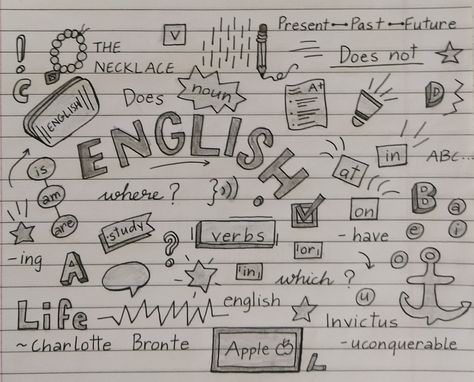 !
THE
NECKLACE
v
Present ↔ Past ↔ Future
Does not
C
D
ENGLISH
Does
noun
A+
D
ENGLISH
is
am
are
where?
}))
at
in
ABC...
on
B
a
e
i
o
u
study
?
verbs
or
- have
-ing
A
in
which?
english
Life
Invictus
-uconquerable
~Charlotte Bronte
Apple
L